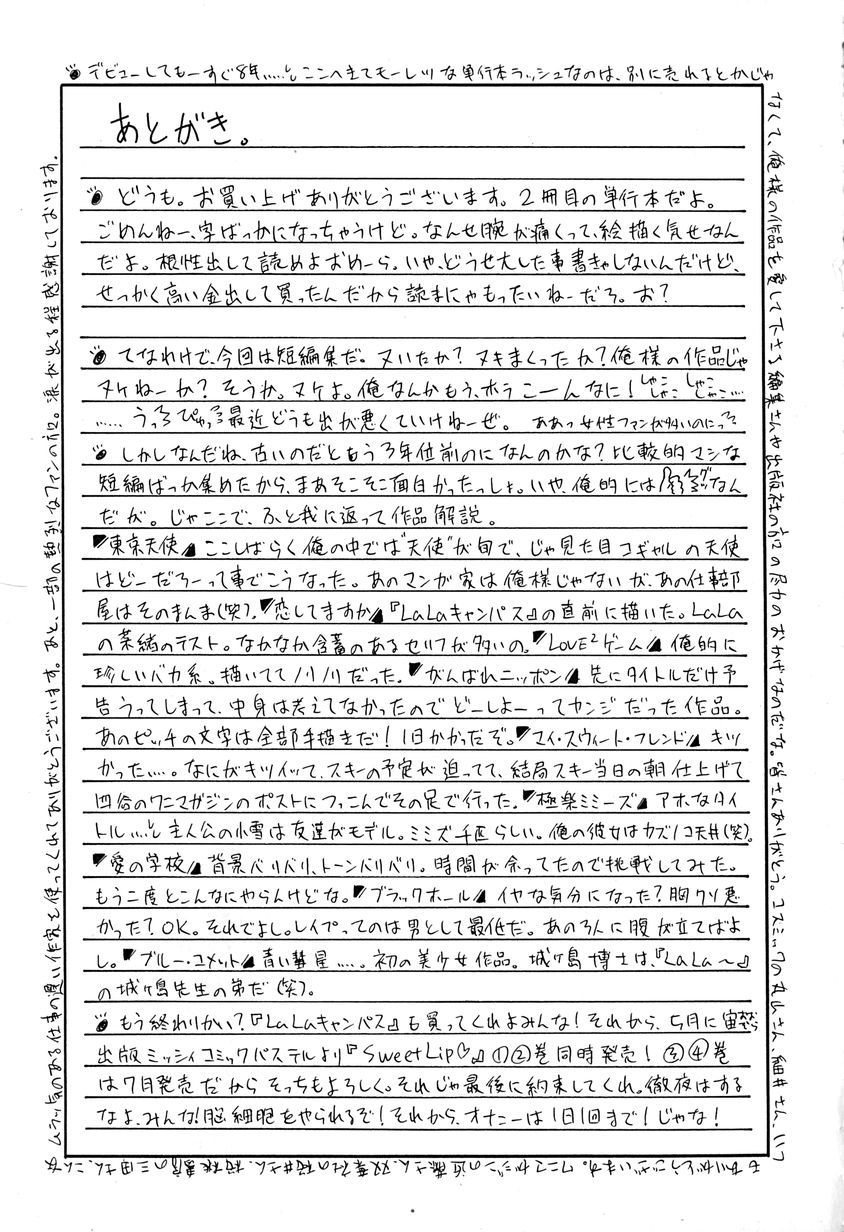 デビューしてもーすぐ8年……。ここへきてモーレツな単行本ラッシュなのは、別に売れるとかじゃ
なくて、俺様の作品を愛して下さる編集さんや出版社の方の尽力のおかげなのだな。皆さんありがとう。コスミックの丸山さん、細井さん、いつ
もありがとうございます。ワニマガジンの近藤さん、双葉社の桜井さん、桜桃書房の三田さん、こんな
ムラッ気のある仕事の遅い作家を使ってくれてありがとうございます。あと、一部の熱烈なファンの方。涙が出る程感謝しております。
あとがき。
どうも。お買い上げありがとうございます。2冊目の単行本だよ。
ごめんねー、字ばっかになっちゃうけど。なんせ腕が痛くって、絵描く気せなん
だよ。根性出して読めよおめーら。いや、どうせ大した事書きゃしないんだけど、
せっかく高い金出して買ったんだから読まにゃもったいねーだろ。お?
てなわけで、今回は短編集だ。ヌいたか?ヌキまくったか?俺様の作品じゃ
ヌケねーか?そうか。ヌケよ。俺なんかもう、ホラこーんなに!しゃこしゃこしゃこしゃこ…
……うっ ぴゅっ 最近どうも出が悪くていけねーぜ。ああっ女性ファンが多いのにっ
しかしなんだね、古いのだともう3年位前のになんのかな?比較的マシな
短編ばっか集めたから、まあそこそこ面白かったっしょ。いや、俺的には なん
だが。じゃここで、ふと我に返って作品解説。
東京天使 ここしばらく俺の中では"天使"が旬で、じゃ見た目コギャルの天使
はどーだろーって事でこうなった。あのマンガ家は俺様じゃないが、あの仕事部
屋はそのまんま(笑)。恋してますか『LaLaキャンパス』の直前に描いた。LaLa
の菜緒のテスト。なかなか含蓄のあるセリフが多いの。LOVE²ゲーム 俺的に
珍しいバカ系。描いててノリノリだった。がんばれニッポン 先にタイトルだけ予
告うってしまって、中身は考えてなかったのでどーしよーってカンジだった作品。
あのピッチの文字は全部手描きだ!1日かかったぞ。マイ・スウィート・フレンド キツ
かった……。なにがキツイッて、スキーの予定が迫ってて、結局スキー当日の朝仕上げて
四谷のワニマガジンのポストにつっこんでその足で行った。極楽ミミーズ アホなタイ
トル……。主人公の小雪は友達がモデル。ミミズ千匹らしい。俺の彼女はカズノコ天井(笑)。
愛の学校 背景バリバリ、トーンバリバリ。時間が余ってたので挑戦してみた。
もう二度とこんなにやらんけどな。ブラックホール イヤな気分になった?胸クソ悪
かった?OK。それでよし。レイプってのは男として最低だ。あの3人に腹が立てばよ
し。ブルー・コメット 青い彗星……。初の美少女作品。城ヶ島博士は、『LaLa〜』
の城ヶ島先生の弟だ(笑)。
もう終わりかい?『LaLaキャンパス』も買ってくれよみんな!それから、5月に宙
出版ミッシィコミックパステルより『Sweet Lip♡』①②巻同時発売!③④巻
は7月発売だからそっちもよろしく。それじゃ最後に約束してくれ。徹夜はする
なよ、みんな!脳細胞をやられるぞ!それから、オナニーは1日1回まで!じゃな!